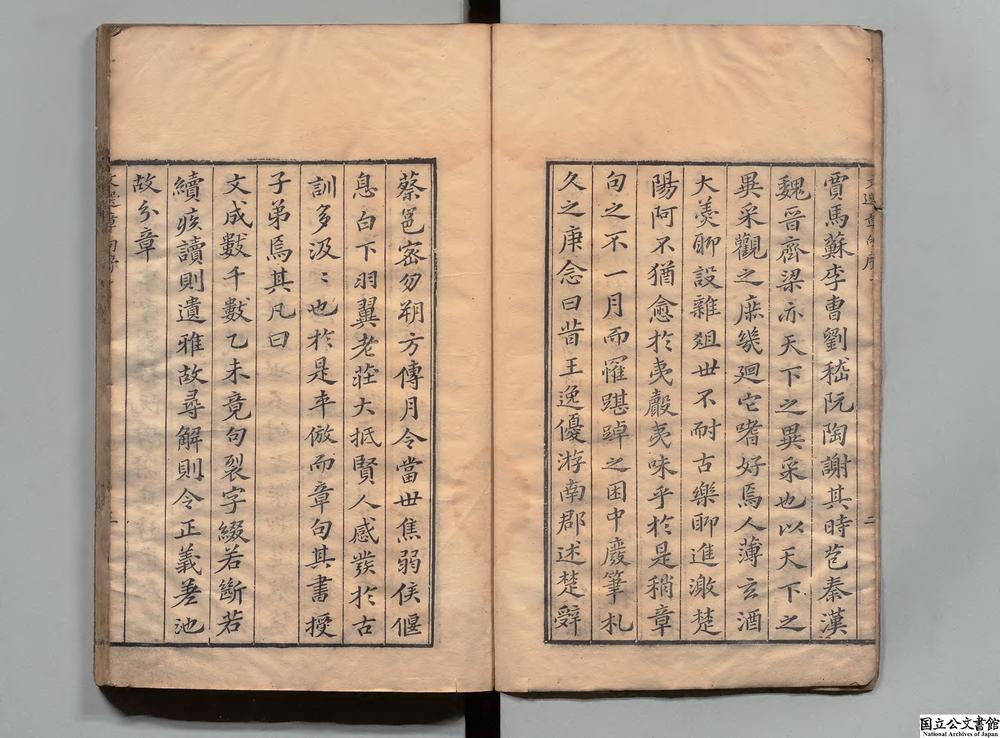 賈馬蘇李曹劉嵇阮陶謝其時苞秦漢
魏晋齊梁亦天下之異采也以天下之
異采觀之庶幾廻它嗜好焉人薄玄酒
大羹聊設雜爼世不耐古樂聊進激楚
陽阿不猶愈於夷嚴夷味乎於是稍章
句之不一月而罹踸踔之困中廢筆札
久之庚念曰昔王逸優游南郡述楚辭
蔡邕宻勿朔方傳月令當世焦弱侯偃
息白下羽翼老莊大抵賢人感發於古
訓多汲〻也於是卒倣而章句其書授
子弟焉其凡曰
文成數千數乙未竟句裂字綴若斷若
續疾讀則遺雅故尋解則令正義差池
故分章
国立公文書館
National Archives of Japan